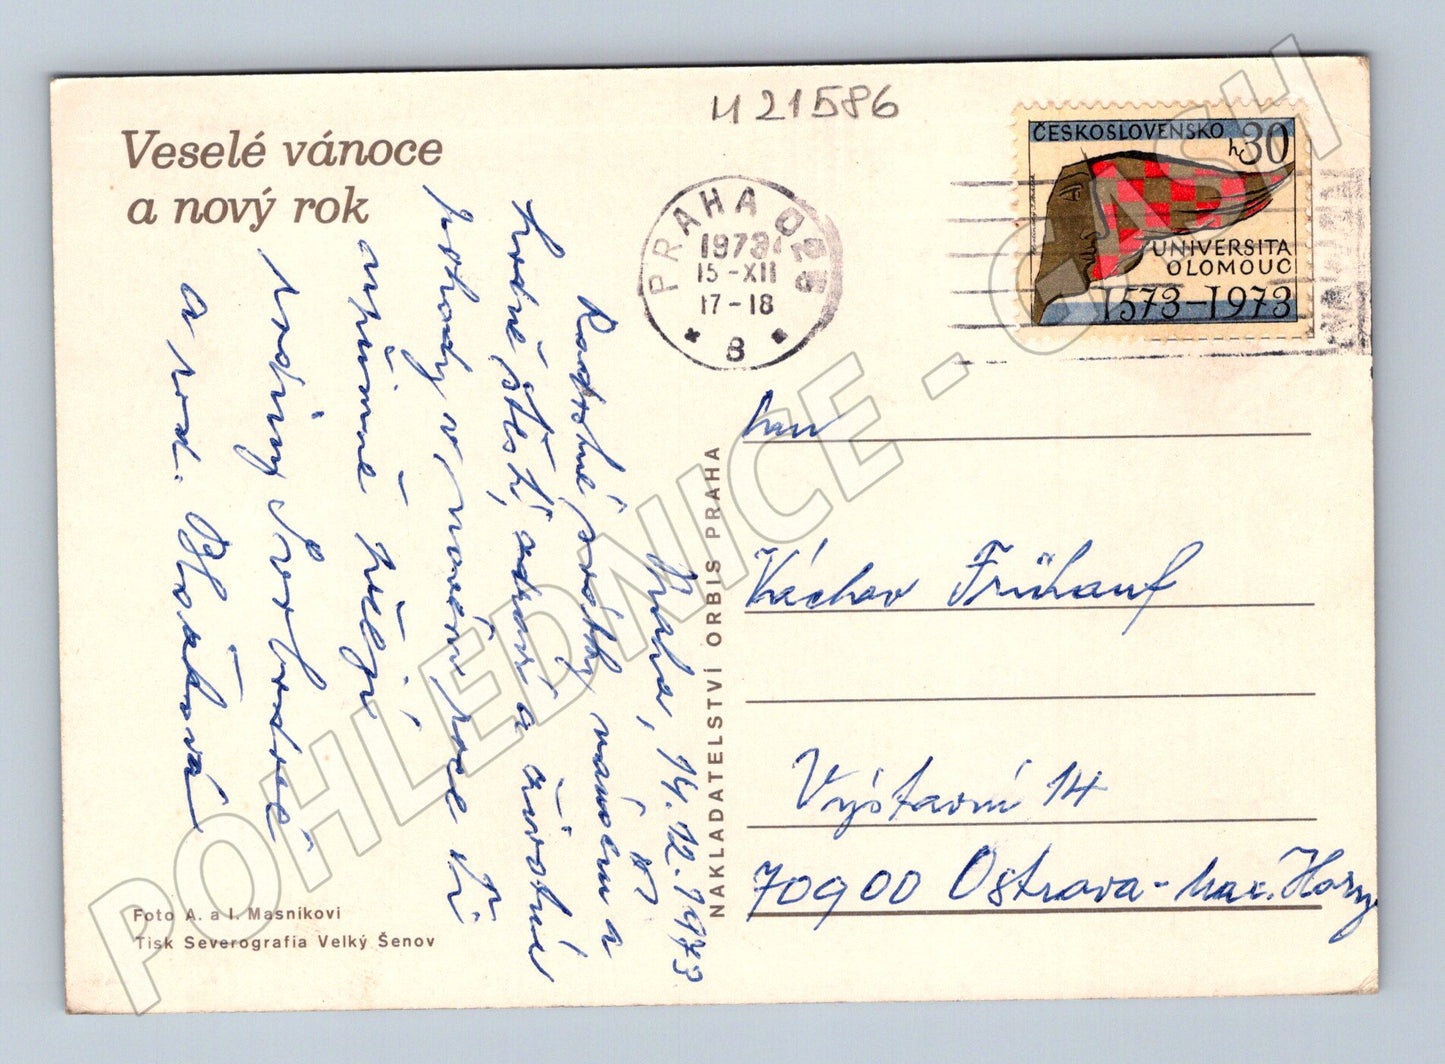 Veselé vánoce
a nový rok
U 21586
PRAHA 02
1973
15-XII
17-18
8
ČESKOSLOVENSKO
h 30
UNIVERSITA
OLOMOUC
1573-1973
Praha, 14.12.1973
Radostné prožití vánoční a
hodně štěstí, zdraví a životní
pohody v novém roce Vám
upřímně přeje
rodiny
a rod.
Foto A. a I. Masnikovi
Tisk Severografia Velký Šenov
NAKLADATELSTVÍ ORBIS PRAHA
Václav Frühauf
Výstavní 14
70900 Ostrava-Mar. Hory
POHLEDNICE - CASH